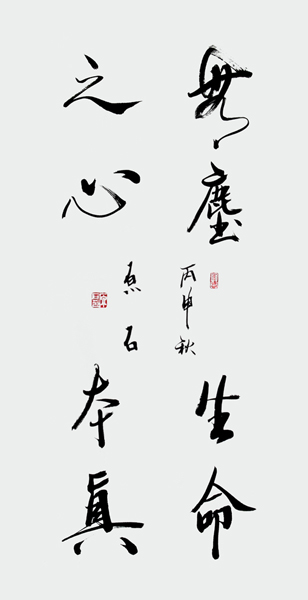 無塵
之心
丙申秋
点石
生命
本真